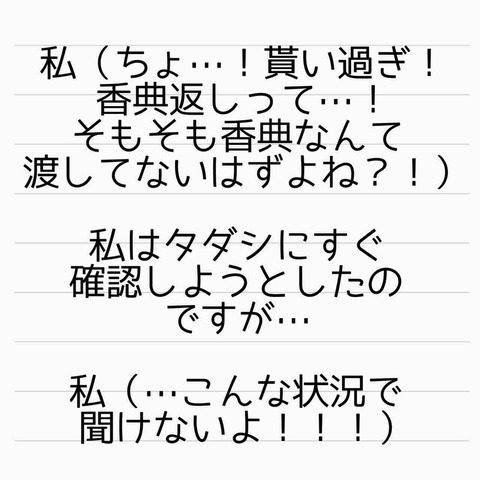 私（ちょ…！貰い過ぎ！
香典返しって…！
そもそも香典なんて
渡してないはずよね？！）
私はタダシにすぐ
確認しようとしたの
ですが…
私（…こんな状況で
聞けないよ！！！）